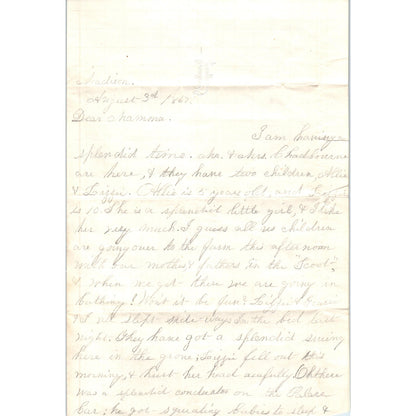 Madison.
August 3d / 1867.
Dear Mamma.
I am having a
splendid time. Mr. & Mrs.
are here, & they have two children, Allie
& Lizzie. Allie is 5 years old, and Lizzie
is 10. She is a splendid little girl, & I like
her very much. I guess all us children
are going over to the farm this afternoon
with our mothers & fathers in the "Scoot"
& when we get there we are going in
bathing! Won't it be fun. Lizzie &
& I slept side-ways in the bed last
night. They have got a splendid swing
here in the grove; Lizzie fell out this
morning, & hurt her head awfully Oh there
was a splendid conductor on the Palace
Car; he got squealing babies to sleep &